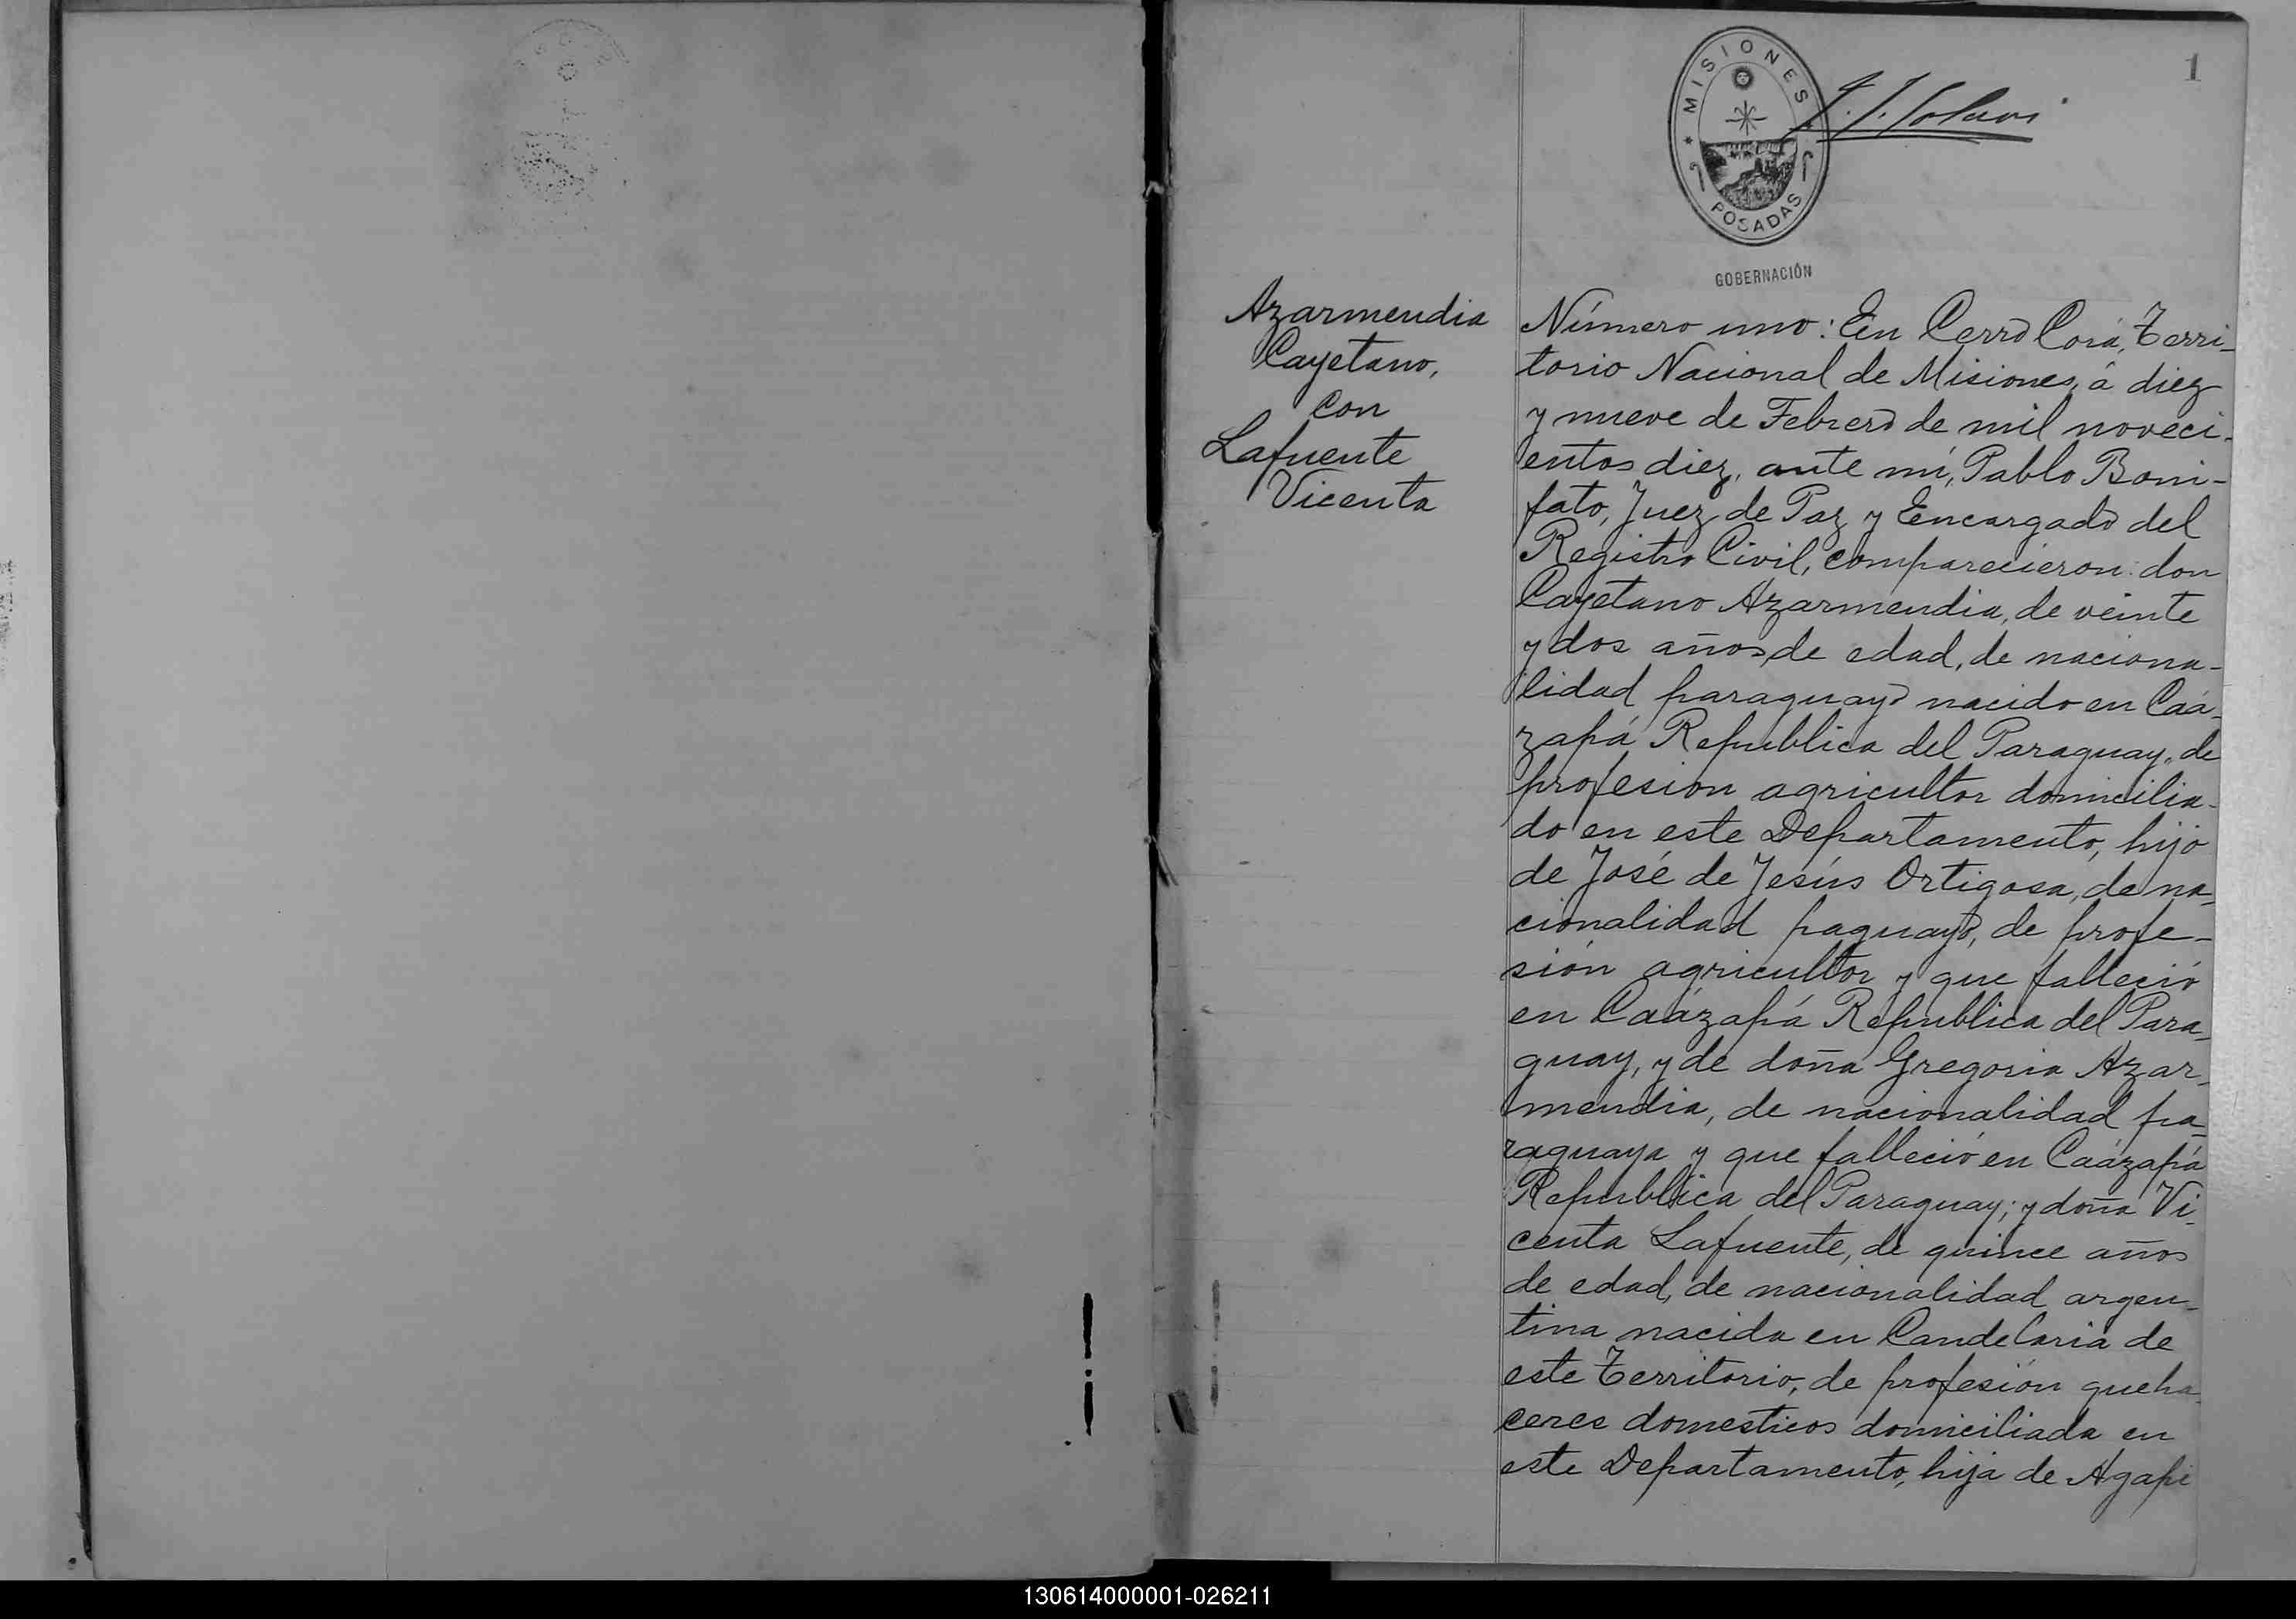 1
MISIONES
POSADAS
GOBERNACIÓN
Azarmendia
Cayetano,
con
Lafuente
Vicenta
Número uno: En Cerro Corá, Terri-
torio Nacional de Misiones, á diez
y nueve de Febrero de mil noveci-
entos diez, ante mí, Pablo Boni-
fato, Juez de Paz y Encargado del
Registro Civil, comparecieron: don
Cayetano Azarmendia, de veinte
y dos años de edad, de naciona-
lidad paraguayo nacido en Caá-
zapá Republica del Paraguay, de
profesion agricultor domicilia-
do en este Departamento, hijo
de José de Jesús Ortigosa, de na-
cionalidad paguayo, de profe-
sión agricultor y que falleció
en Caázapá Republica del Para-
guay, y de doña Gregoria Azar-
mendia, de nacionalidad pa-
raguaya y que falleció en Caázapá
Republica del Paraguay; y doña Vi-
centa Lafuente, de quince años
de edad, de nacionalidad argen-
tina nacida en Candelaria de
este Territorio, de profesión queha-
ceres domesticos domiciliada en
este Departamento, hija de Agapi
130614000001-026211